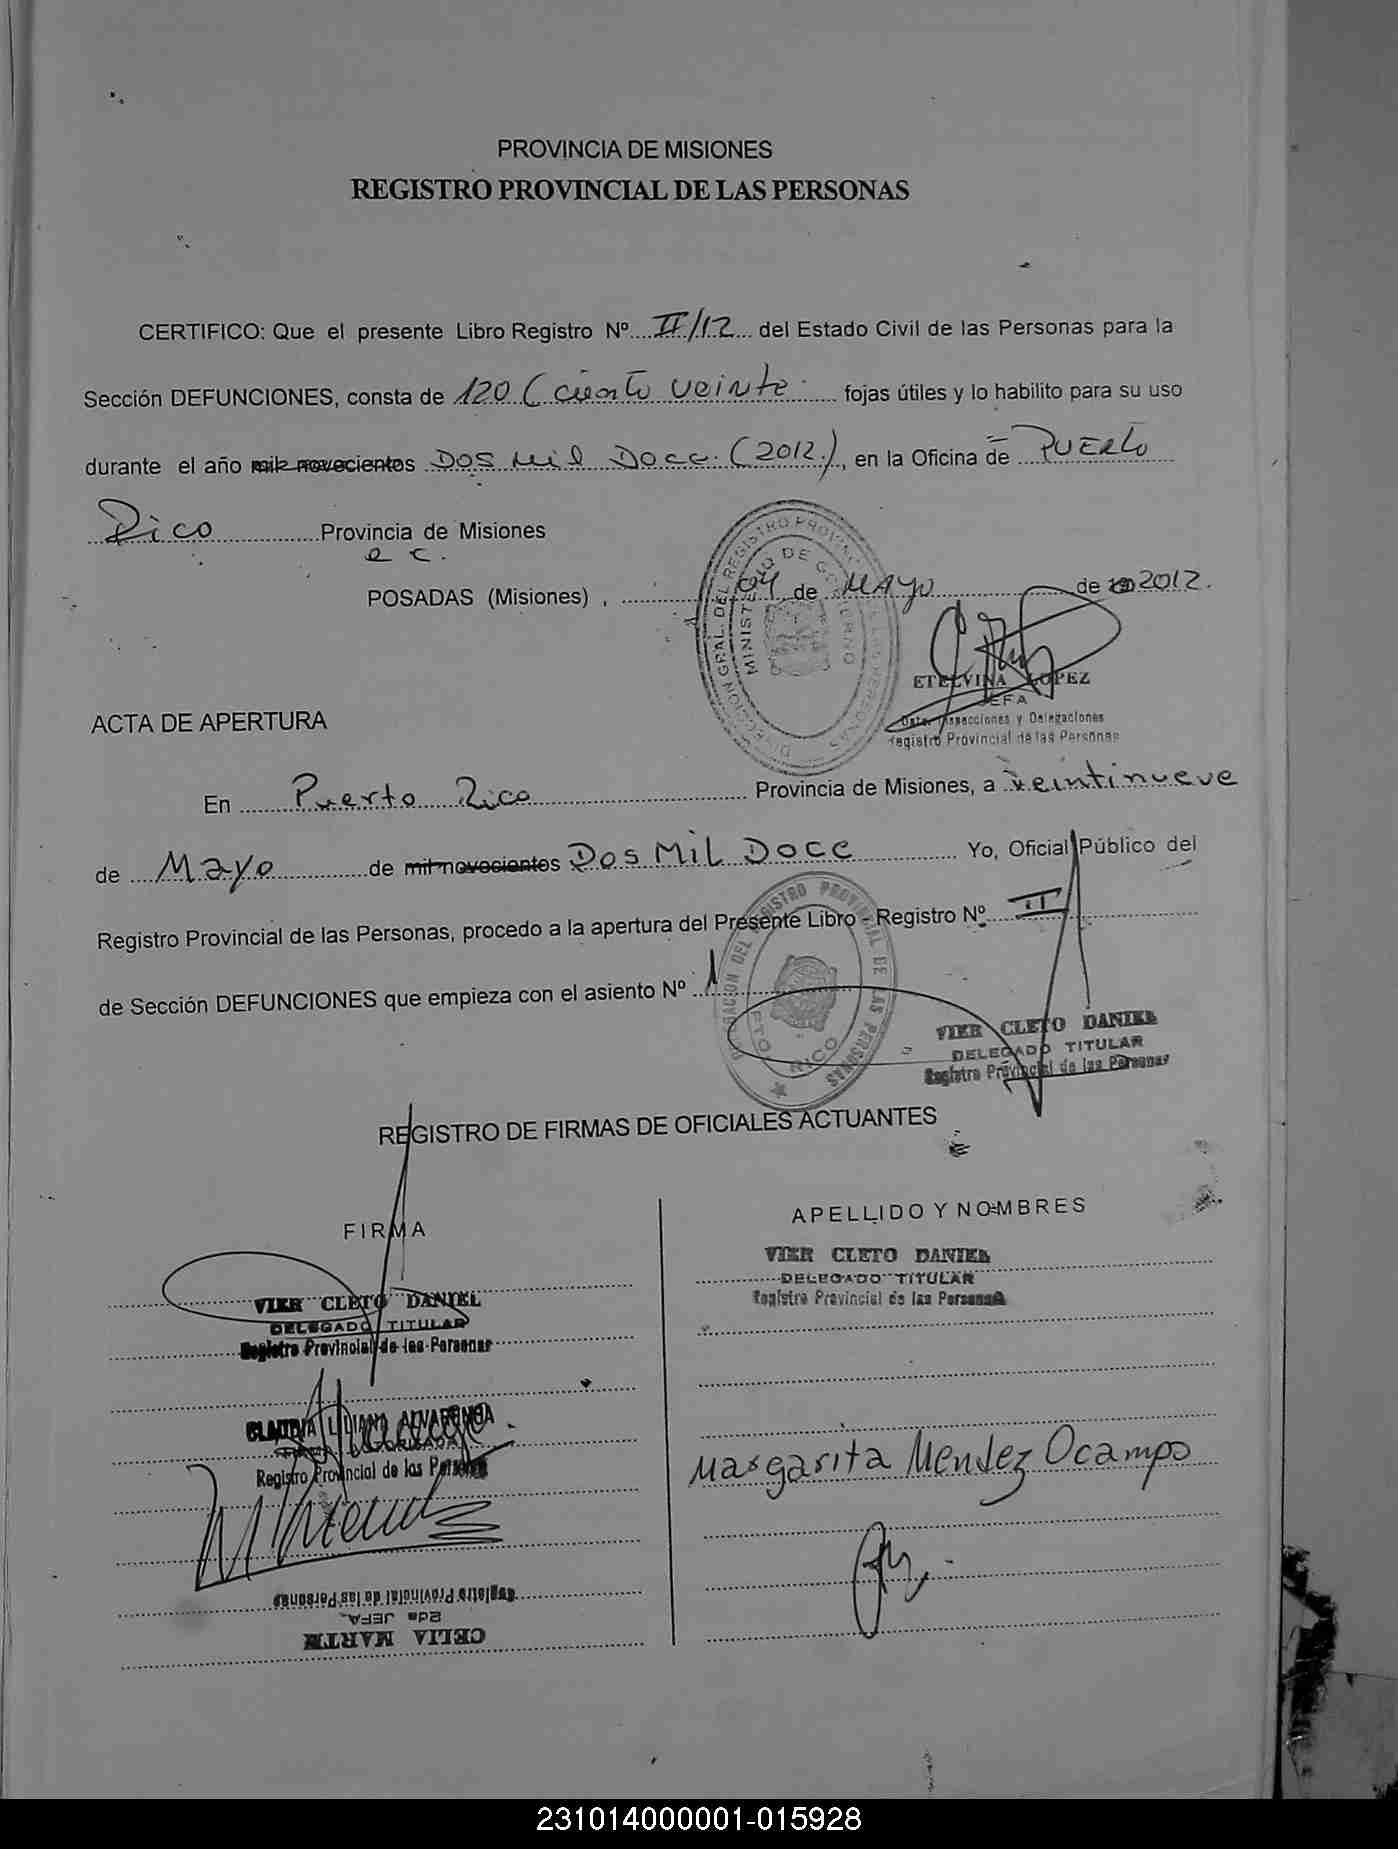 PROVINCIA DE MISIONES
REGISTRO PROVINCIAL DE LAS PERSONAS
CERTIFICO: Que el presente Libro Registro Nº II/12 del Estado Civil de las Personas para la
Sección DEFUNCIONES, consta de 120 (ciento veinte fojas útiles y lo habilito para su uso
durante el año mil novecientos Dos Mil Doce (2012), en la Oficina de Puerto
Rico Provincia de Misiones
e c.
POSADAS (Misiones), 04 de MAYO de 2012.
DIRECCION GRAL. DEL REGISTRO PROVINCIAL DE LAS PERSONAS
MINISTERIO DE GOBIERNO
ETELVINA LOPEZ
JEFA
Dpto. Inspecciones y Delegaciones
Registro Provincial de las Personas
ACTA DE APERTURA
En Puerto Rico Provincia de Misiones, a veintinueve
de Mayo de mil novecientos Dos Mil Doce Yo, Oficial Público del
Registro Provincial de las Personas, procedo a la apertura del Presente Libro - Registro Nº II
de Sección DEFUNCIONES que empieza con el asiento Nº 1
DELEGACION DEL REGISTRO PROVINCIAL DE LAS PERSONAS
PTO RICO
VIER CLETO DANIEL
DELEGADO TITULAR
Registro Provincial de las Personas
REGISTRO DE FIRMAS DE OFICIALES ACTUANTES
FIRMA
APELLIDO Y NOMBRES
VIER CLETO DANIEL
DELEGADO TITULAR
Registro Provincial de las Personas
VIER CLETO DANIEL
DELEGADO TITULAR
Registro Provincial de las Personas
CLAUDIA LILIANA ALVARENGA
FIRMA AUTORIZADA
Registro Provincial de las Personas
Margarita Mendez Ocampo
CELIA MARTE
2da JEFA
Registro Provincial de las Personas
231014000001-015928